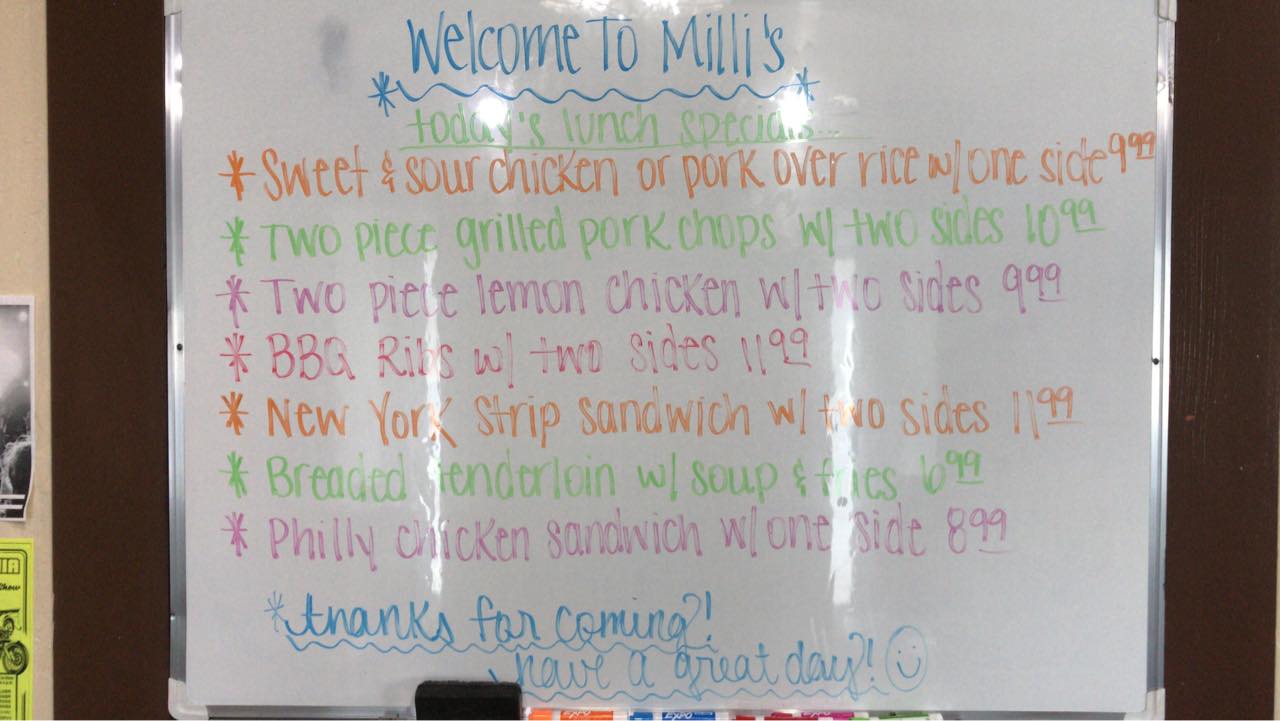 Welcome To Milli's
today's lunch specials...
* Sweet & sour chicken or pork over rice w/ one side 9.99
* Two piece grilled pork chops w/ two sides 10.99
* Two piece lemon chicken w/ two sides 9.99
* BBQ Ribs w/ two sides 11.99
* New York Strip sandwich w/ two sides 11.99
* Breaded tenderloin w/ soup & fries 6.99
* Philly chicken sandwich w/ one side 8.99
*thanks for coming?!
have a great day?! ☺
EXPO EXPO